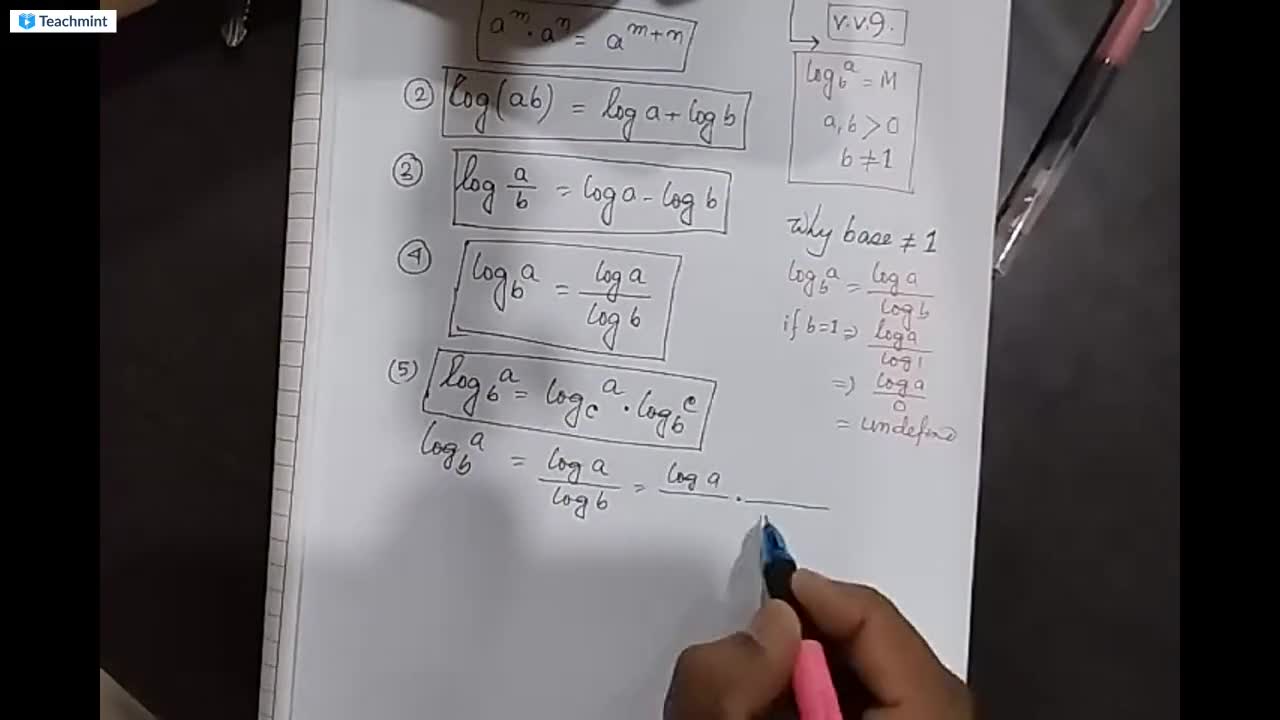 Teachmint
a^m · a^n = a^(m+n)
② log(ab) = log a + log b
③ log a/b = log a - log b
④ log_b a = log a / log b
(5) log_b a = log_c a · log_b c
log_b a = log a / log b = log a / ·
v.v.g.
log_b a = M
a, b > 0
b ≠ 1
Why base ≠ 1
log_b a = log a / log b
if b=1 => log a / log 1
=> log a / 0
= undefine